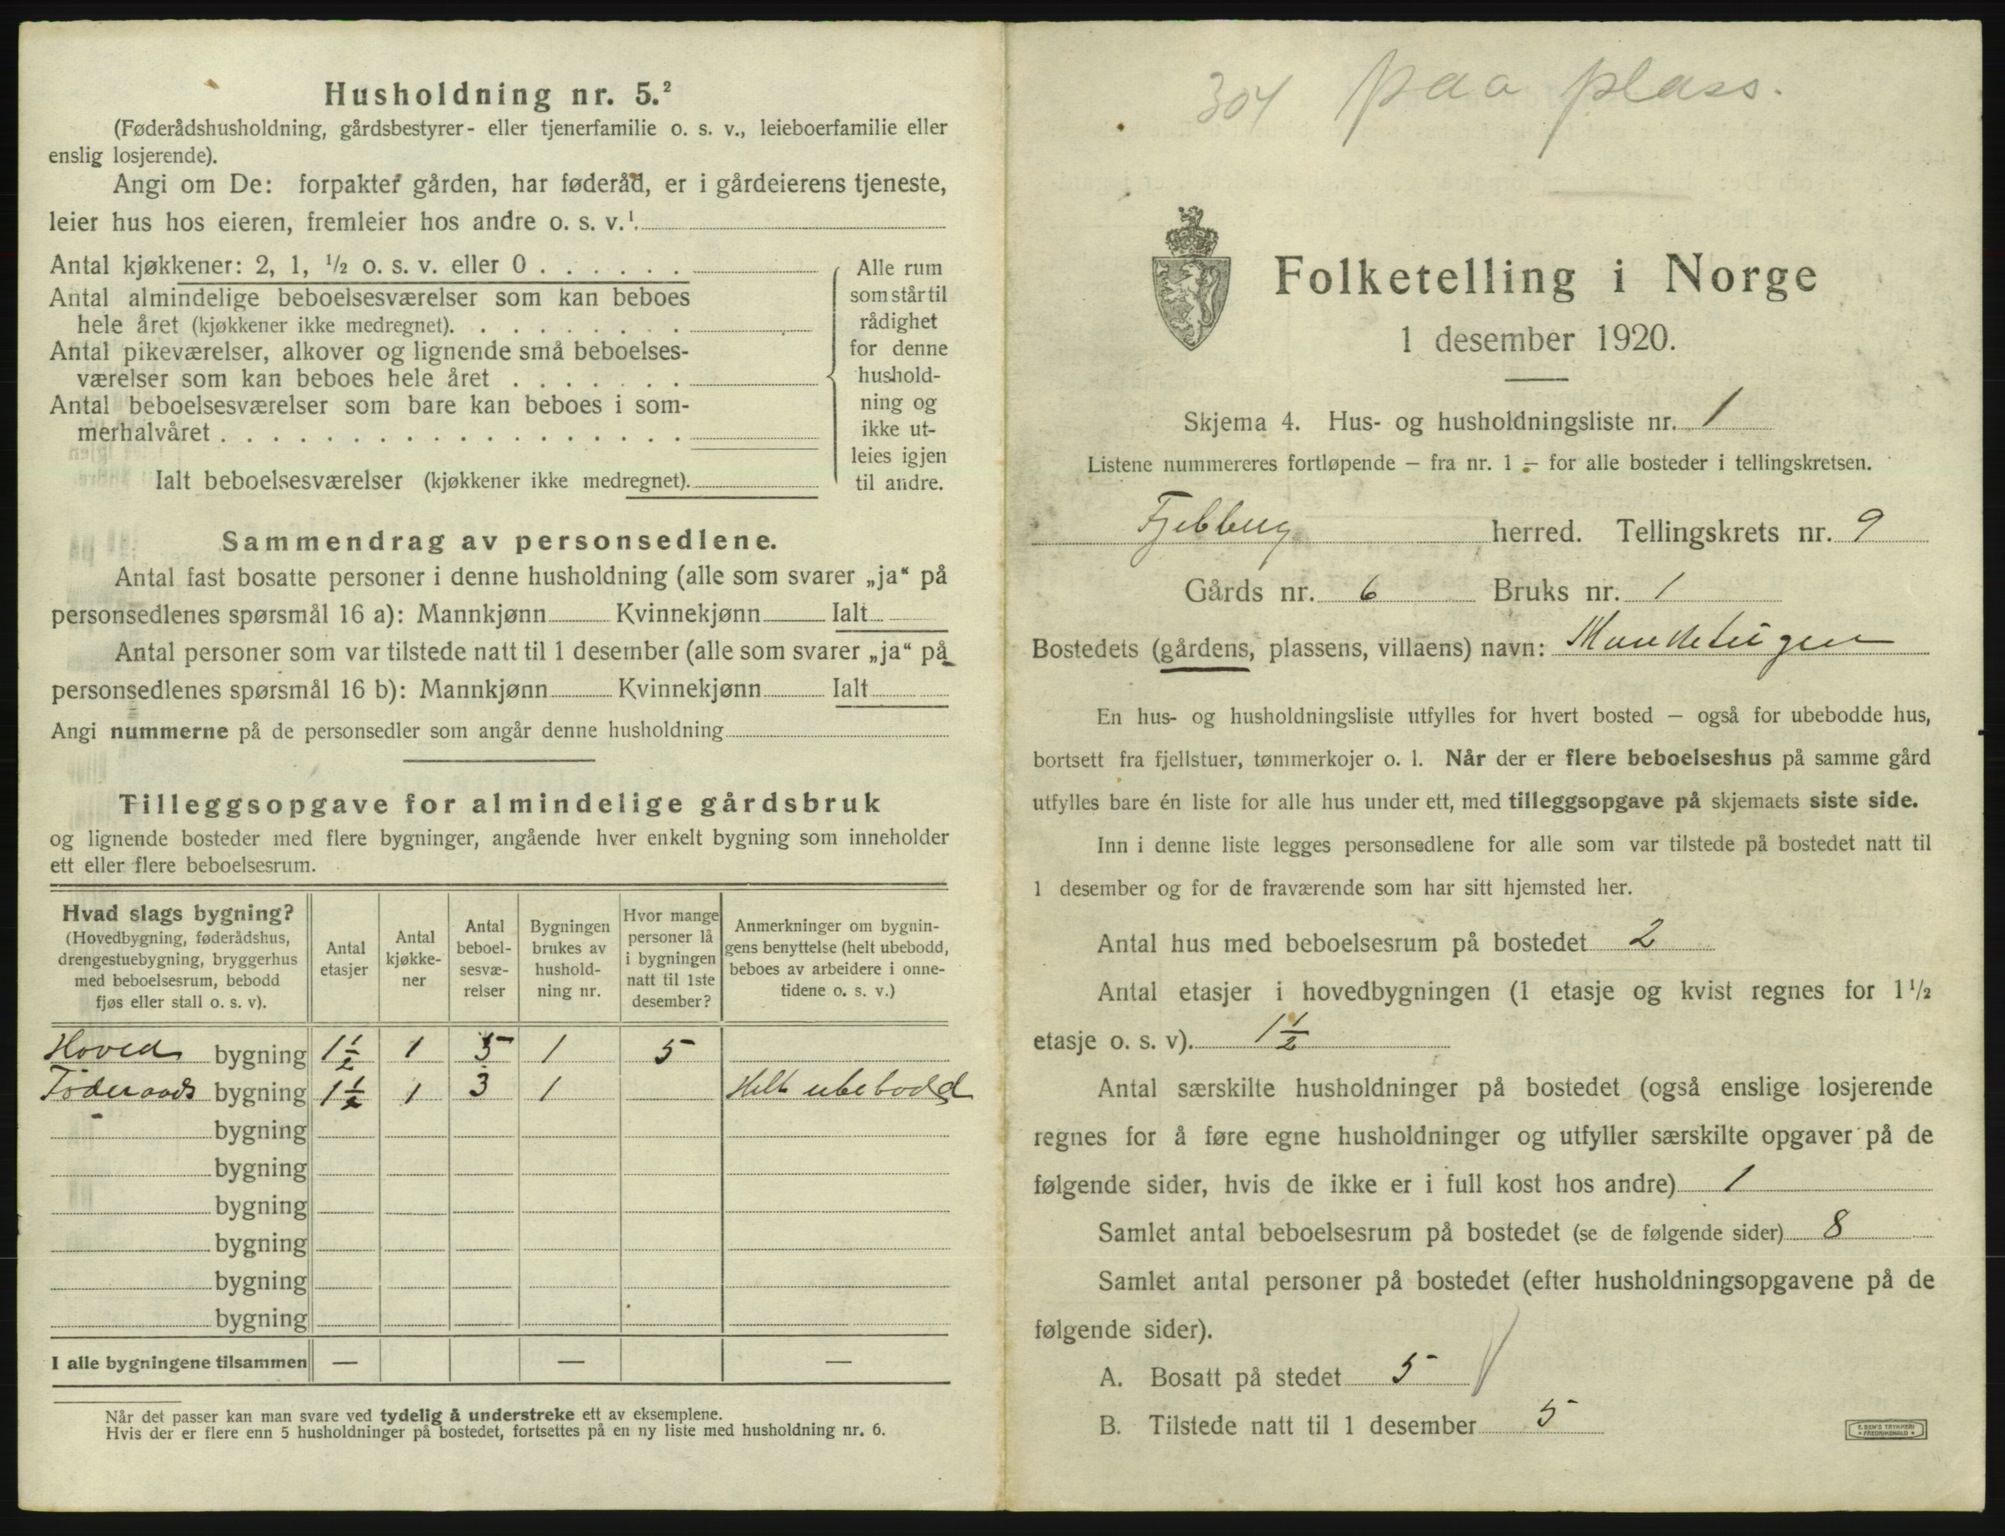 Husholdning nr. 5.²
(Føderådshusholdning, gårdsbestyrer- eller tjenerfamilie o. s. v., leieboerfamilie eller
enslig losjerende).
Angi om De: forpakter gården, har føderåd, er i gårdeierens tjeneste,
leier hus hos eieren, fremleier hos andre o. s. v.¹
Antal kjøkkener: 2, 1, ½ o. s. v. eller 0 . . . . . .
Antal almindelige beboelsesværelser som kan beboes
hele året (kjøkkener ikke medregnet). . . . . . . . .
Antal pikeværelser, alkover og lignende små beboelses-
værelser som kan beboes hele året . . . . . . .
Antal beboelsesværelser som bare kan beboes i som-
merhalvåret . . . . . . . . . . . . . . . . . .
Ialt beboelsesværelser (kjøkkener ikke medregnet).
Alle rum
som står til
rådighet
for denne
hushold-
ning og
ikke ut-
leies igjen
til andre.
Sammendrag av personsedlene.
Antal fast bosatte personer i denne husholdning (alle som svarer „ja“ på
personsedlenes spørsmål 16 a): Mannkjønn Kvinnekjønn Ialt
Antal personer som var tilstede natt til 1 desember (alle som svarer „ja“ på
personsedlenes spørsmål 16 b): Mannkjønn Kvinnekjønn Ialt
Angi nummerne på de personsedler som angår denne husholdning
Tilleggsopgave for almindelige gårdsbruk
og lignende bosteder med flere bygninger, angående hver enkelt bygning som inneholder
ett eller flere beboelsesrum.
Hvad slags bygning?
(Hovedbygning, føderådshus,
drengestuebygning, bryggerhus
med beboelsesrum, bebodd
fjøs eller stall o. s. v).
Antal
etasjer
Antal
kjøkke-
ner
Antal
beboel-
sesvæ-
relser
Bygningen
brukes av
hushold-
ning nr.
Hvor mange
personer lå
i bygningen
natt til 1ste
desember?
Anmerkninger om bygnin-
gens benyttelse (helt ubebodd,
beboes av arbeidere i onne-
tidene o. s. v.)
Hoved bygning 1½ 1 5 1 5
Föderaads bygning 1½ 1 3 1 Helt ubebodd
bygning
bygning
bygning
bygning
bygning
bygning
I alle bygningene tilsammen — — —
Når det passer kan man svare ved tydelig å understreke ett av eksemplene.
Hvis der er flere enn 5 husholdninger på bostedet, fortsettes på en ny liste med husholdning nr. 6.
304 paa plass.
Folketelling i Norge
1 desember 1920.
Skjema 4. Hus- og husholdningsliste nr. 1
Listene nummereres fortløpende – fra nr. 1 – for alle bosteder i tellingskretsen.
Fjelberg herred. Tellingskrets nr. 9
Gårds nr. 6 Bruks nr. 1
Bostedets (gårdens, plassens, villaens) navn:
En hus- og husholdningsliste utfylles for hvert bosted – også for ubebodde hus,
bortsett fra fjellstuer, tømmerkojer o. l. Når der er flere beboelseshus på samme gård
utfylles bare én liste for alle hus under ett, med tilleggsopgave på skjemaets siste side.
Inn i denne liste legges personsedlene for alle som var tilstede på bostedet natt til
1 desember og for de fraværende som har sitt hjemsted her.
Antal hus med beboelsesrum på bostedet 2
Antal etasjer i hovedbygningen (1 etasje og kvist regnes for 1½
etasje o. s. v). 1½
Antal særskilte husholdninger på bostedet (også enslige losjerende
regnes for å føre egne husholdninger og utfyller særskilte opgaver på de
følgende sider, hvis de ikke er i full kost hos andre) 1
Samlet antal beboelsesrum på bostedet (se de følgende sider) 8
Samlet antal personer på bostedet (efter husholdningsopgavene på de
følgende sider).
A. Bosatt på stedet 5
B. Tilstede natt til 1 desember 5